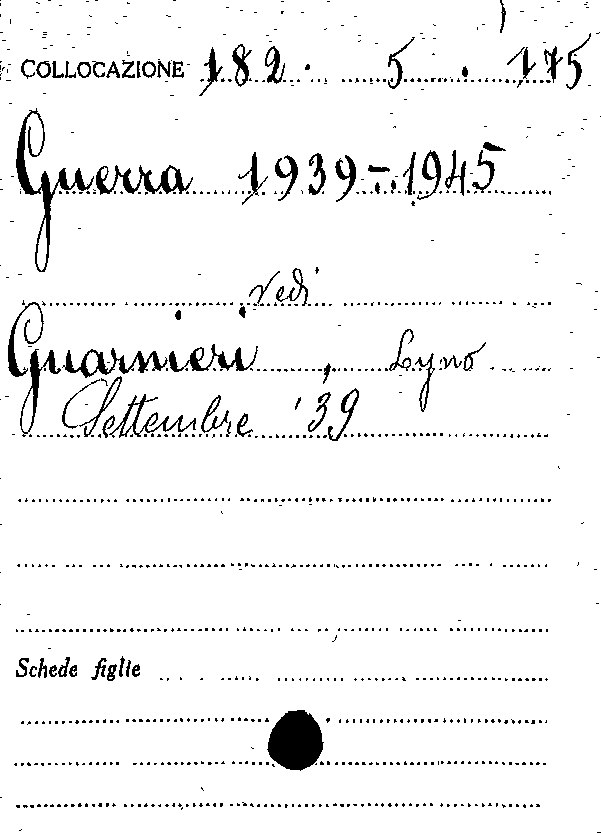 COLLOCAZIONE 182. 5. 175
Guerra 1939-1945
vedi
Guarnieri, Lyno
Settembre '39
Schede figlie